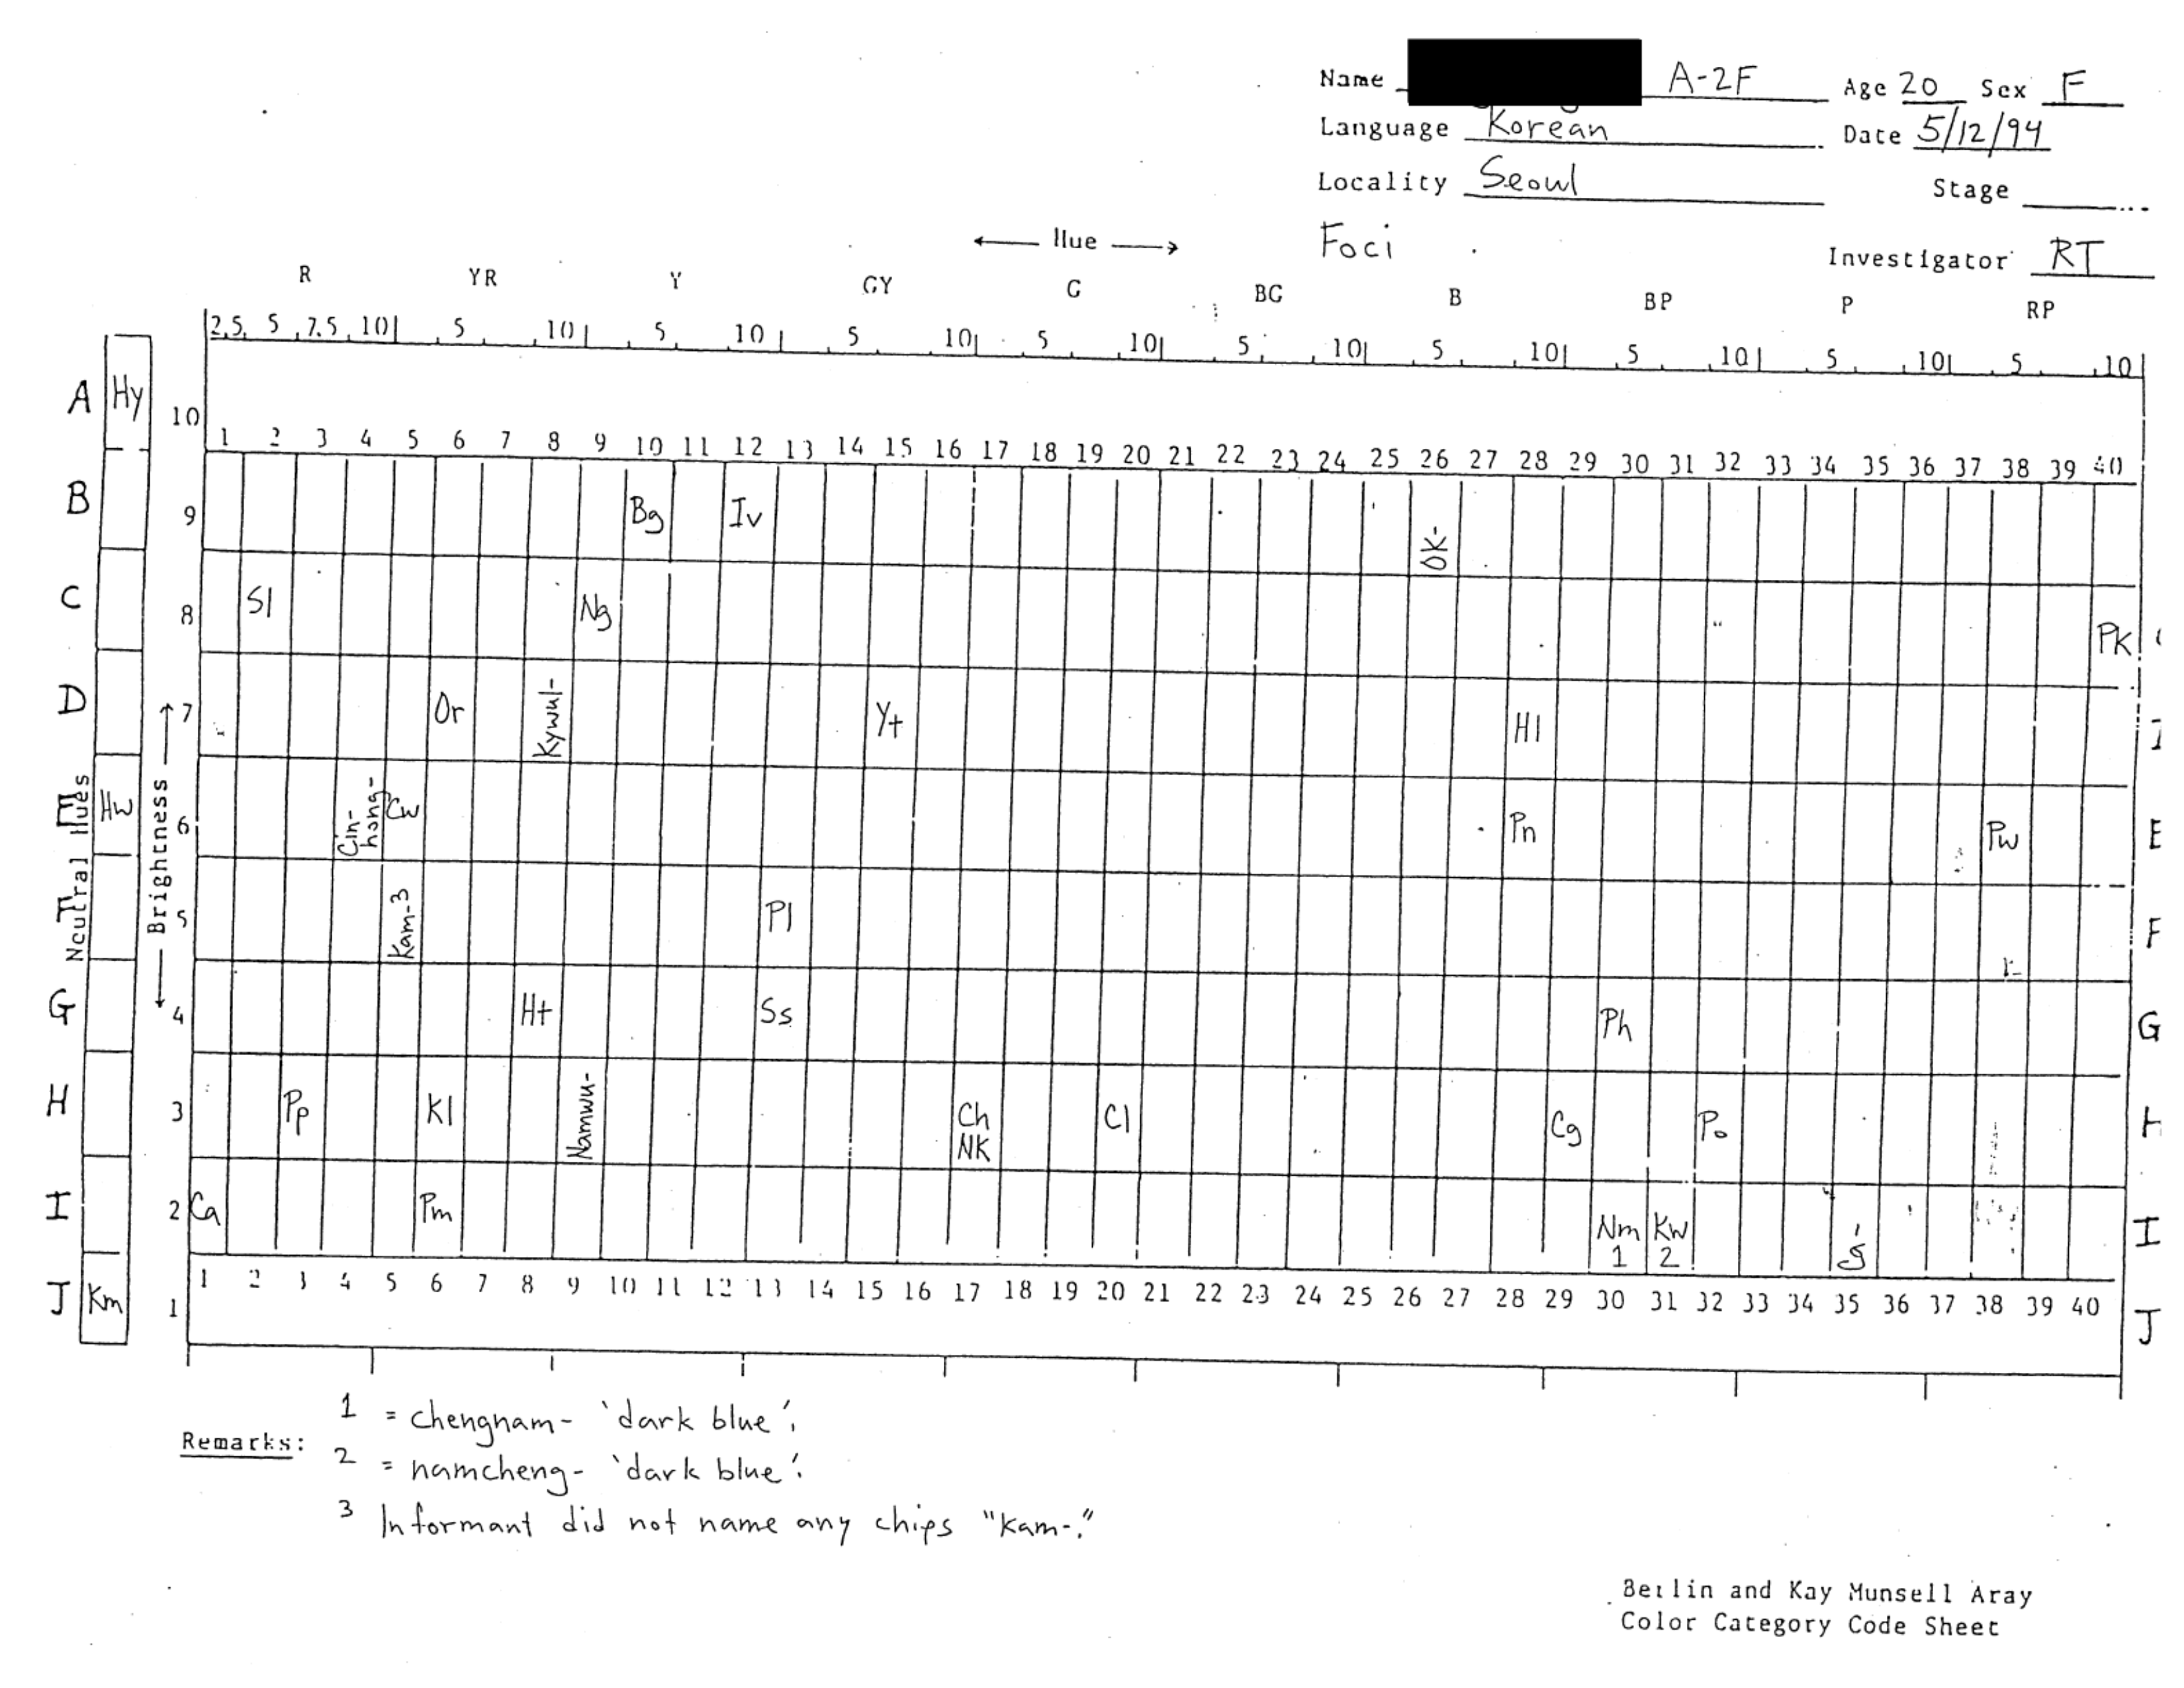 Name A-2F Age 20 Sex F
Language Korean Date 5/12/94
Locality Seoul Stage
Foci Investigator RT
← Hue →
R YR Y GY G BG B BP P RP
2.5 5 7.5 10 5 10 5 10 5 10 5 10 5 10 5 10 5 10 5 10 5 10
A Hy 10
1 2 3 4 5 6 7 8 9 10 11 12 13 14 15 16 17 18 19 20 21 22 23 24 25 26 27 28 29 30 31 32 33 34 35 36 37 38 39 40
B 9 Bg Iv OK-
C 8 Sl Ng PK
D 7 Or Kywul- Y+ Hl
Neutral Hues
← Brightness →
E Hw 6 Cin-hong- Cw Pn Pw E
F 5 Kam-3 Pl F
G 4 Ht Ss Ph G
H 3 Pp Kl Namwu- Ch NK Cl Cg Po H
I 2 Ca Pm Nm 1 Kw 2 I
1 2 3 4 5 6 7 8 9 10 11 12 13 14 15 16 17 18 19 20 21 22 23 24 25 26 27 28 29 30 31 32 33 34 35 36 37 38 39 40
J Km 1 J
Remarks: 1 = chengnam- 'dark blue'.
2 = namcheng- 'dark blue'.
3 Informant did not name any chips "kam-."
Berlin and Kay Munsell Aray
Color Category Code Sheet